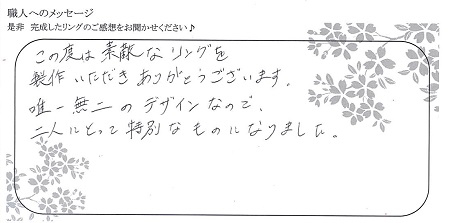 職人へのメッセージ
是非 完成したリングのご感想をお聞かせください♪
この度は素敵なリングを
製作いただきありがとうございます。
唯一無二のデザインなので、
二人にとって特別なものになりました。